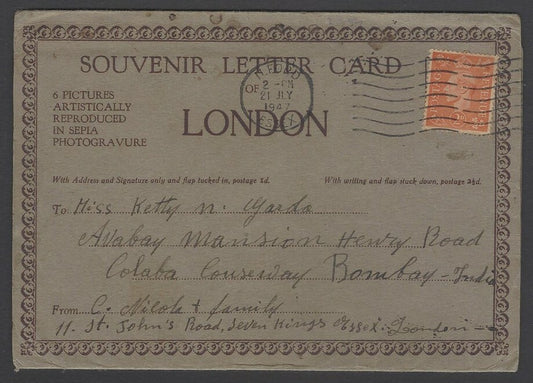 SOUVENIR LETTER CARD
6 PICTURES
ARTISTICALLY
REPRODUCED
IN SEPIA
PHOTOGRAVURE
ILFORD
2 - PM
21 JLY
1947
ESSEX
LONDON
With Address and Signature only and flap tucked in, postage 1d.
With writing and flap stuck down, postage 2½d.
To Miss Ketty N. Garda
Avabay Mansion Henry Road
Colaba Couseway Bombay - India
From C. Nicols + family
11. St. John's Road, Seven Kings Essex. London -